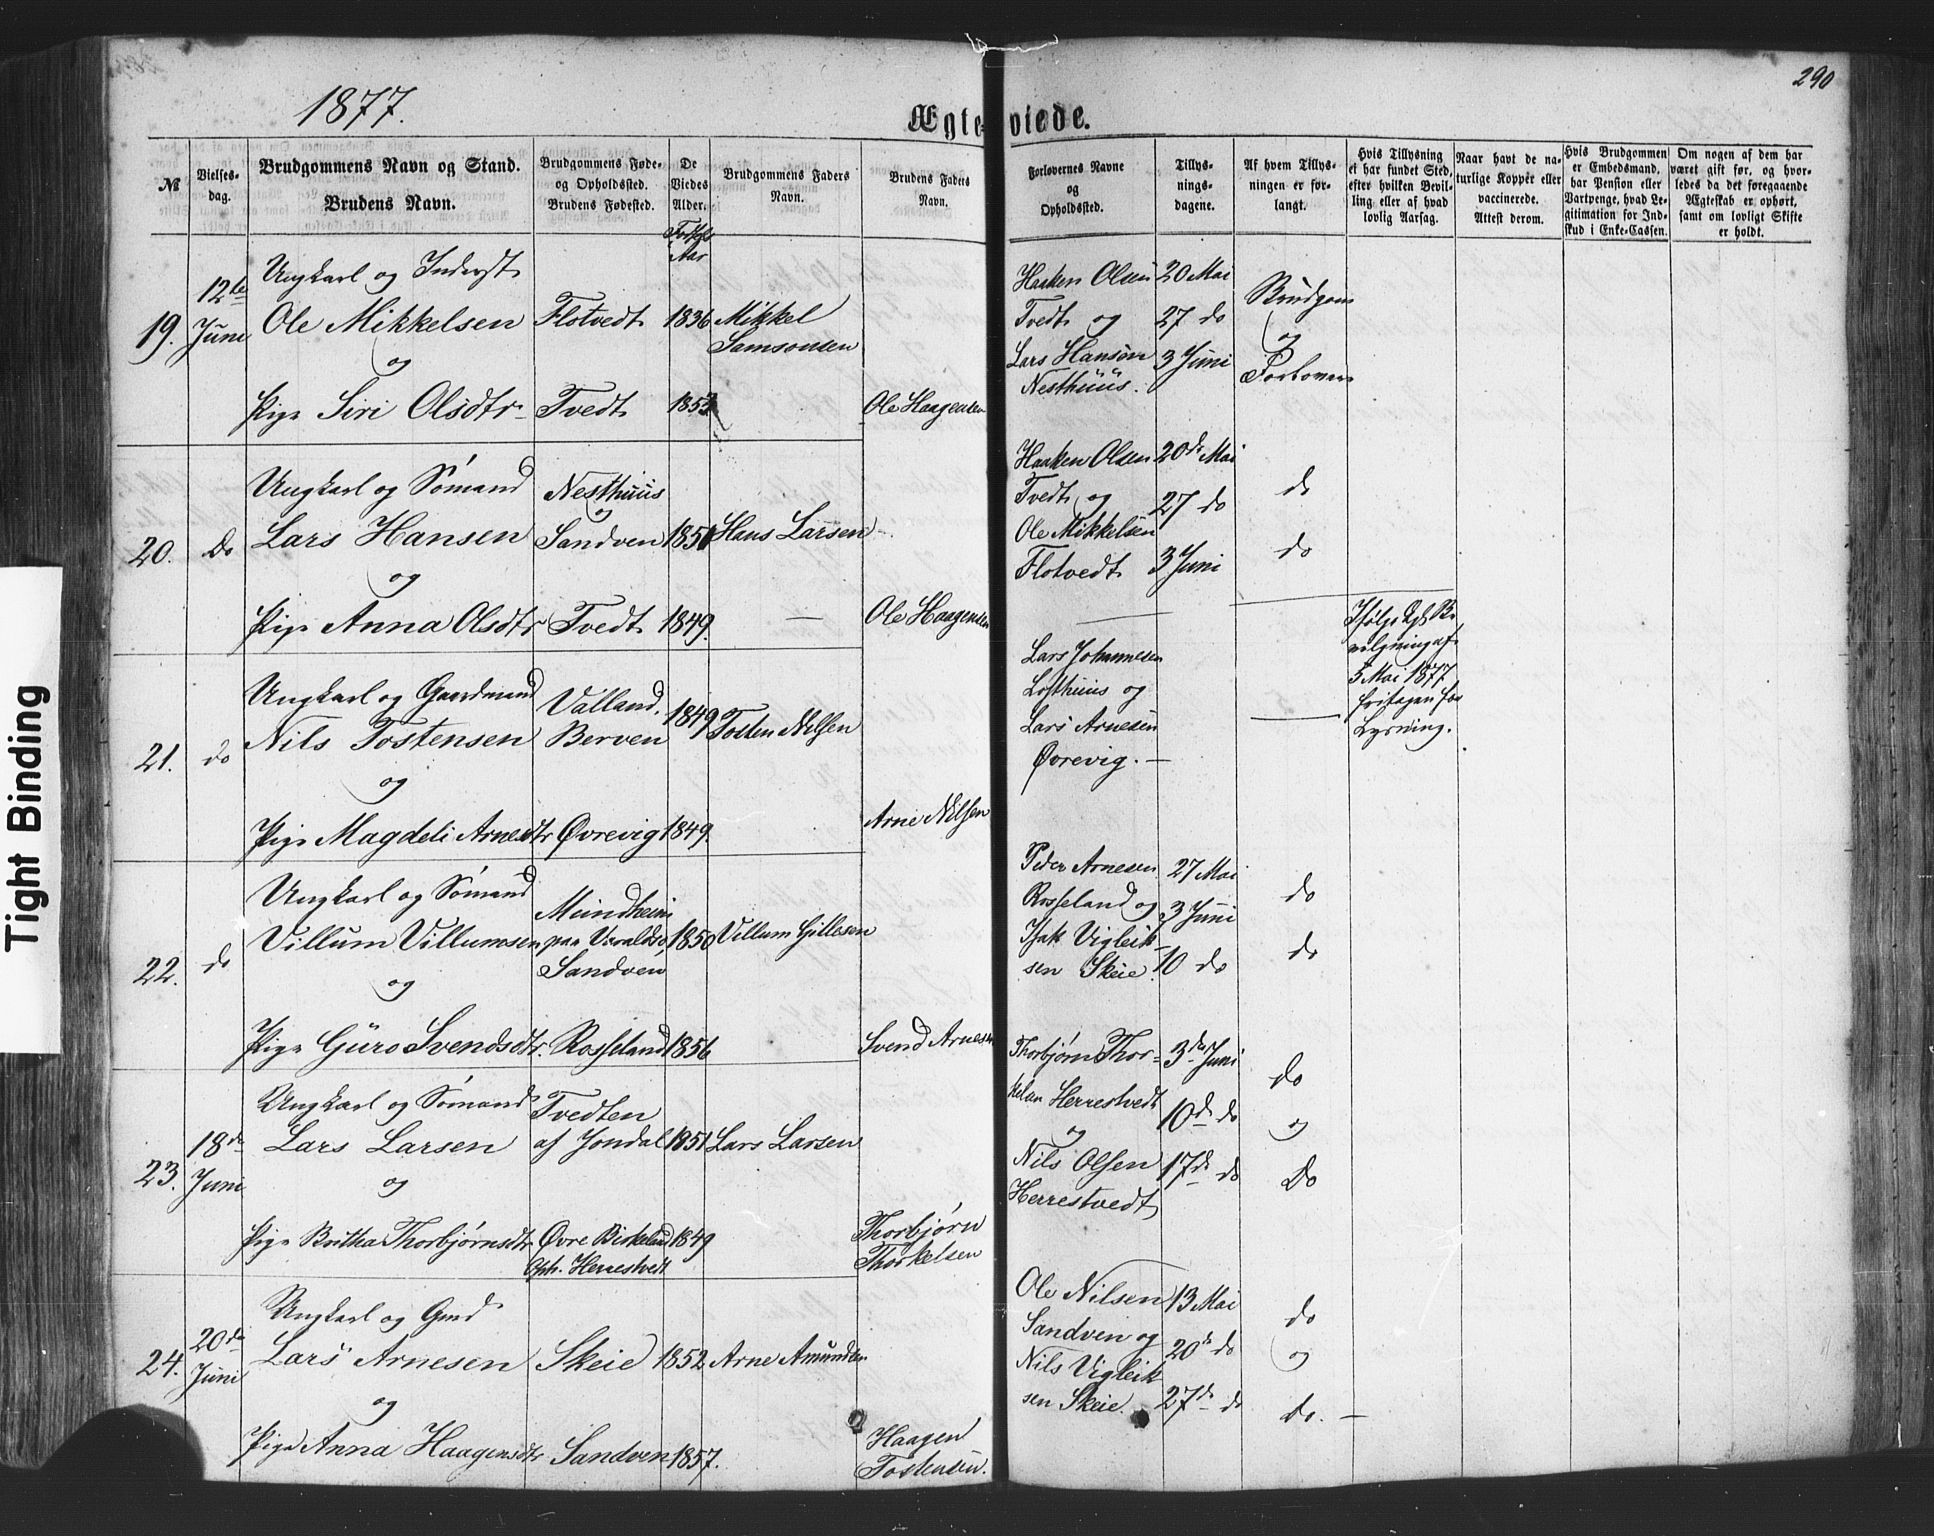 290
1877.
Ægteviede.
№
Vielses-
dag.
Brudgommens Navn og Stand.
Brudens Navn.
Brudgommens Føde-
og Opholdssted.
Brudens Fødested.
De
Viedes
Alder.
Fødsels
Aar
Brudgommens Faders
Navn.
Brudens Faders
Navn.
Forlovernes Navne
og
Opholdssted.
Tillys-
nings-
dagene.
Af hvem Tillys-
ningen er for-
langt.
Hvis Tillysning
ei har fundet Sted,
efter hvilken Bevil-
ling eller af hvad
lovlig Aarsag.
Naar havt de na-
turlige Koppér eller
vaccinerede.
Attest derom.
Hvis Brudgommen
er Embedsmand,
har Pension eller
Vartpenge, hvad Le-
gitimation for Ind-
skud i Enke-Cassen.
Om nogen af dem har
været gift før, og hvor-
ledes da det foregaaende
Ægteskab er ophørt,
samt om lovligt Skifte
er holdt.
19.
12te
Juni
Ungkarl og Inderst
Ole Mikkelsen
og
Pige Siri Olsdtr
Flotvedt
Tvedt
1836
1853
Mikkel
Samsonsen
Ole Haagensen
Haaken Olsen
Tvedt og
Lars Hansen
Nesthuus.
20 Mai
27 do
3 Juni
Brudgom
og
Forlovere
20.
Do
Ungkarl og Sømand
Lars Hansen
og
Pige Anna Olsdtr
Nesthuus
og
Sandven
Tvedt
1851
1849.
Hans Larsen
—
Ole Haagensen
Haaken Olsen
Tvedt og
Ole Mikkelsen
Flotvedt
20de Mai
27 do
3 Juni
do
do
21.
do
Ungkarl og Gaardmand
Nils Tostensen
og
Pige Magdeli Arnesdtr
Valland.
Berven
Øvrevig
1849
1849.
Tosten Nilsen
Arne Nilsen
Lars Johannesen
Losthuus og
Lars Arnesen
Øvrevig. —
Ifølge Kgl. Be-
vilgning af
5 Mai 1877
fritagen for
Lysning.
22.
do
Ungkarl og Sømand
Villum Villumsen
og
Pige Guro Svendsdtr.
Mundheim
paa Varaldsø,
Sandven
Rosseland
1850
1856
Villum Gillesen
Svend Arnesen
Peder Arnesen
Rosseland og
Isak Vigleik-
sen Skeie.
27 Mai
3 Juni
10 do
do
do
23.
18de
Juni
Ungkarl og Sømand
Lars Larsen
og
Pige Britha Thorbjørnsdtr
Tvedten
af Jondal
Øvre Birkeland
Oph. Herrestvedt
1851
1849
Lars Larsen
Thorbjørn
Thorkelsen
Thorbjørn Thor-
kelsen Herrestvedt
og
Nils Olsen
Herrestvedt
3de Juni
10de do
17de do
do
og
Do
24.
20de
Juni
Ungkarl og Gmd
Lars Arnesen
og
Pige Anna Haagensdtr
Skeie
Sandven
1852
1857.
Arne Amundsen
Haagen
Tostensen.
Ole Nilsen
Sandven og
Nils Vigleik
sen Skeie.
13 Mai
20de do
27de do
do
og
do. —
Tight Binding